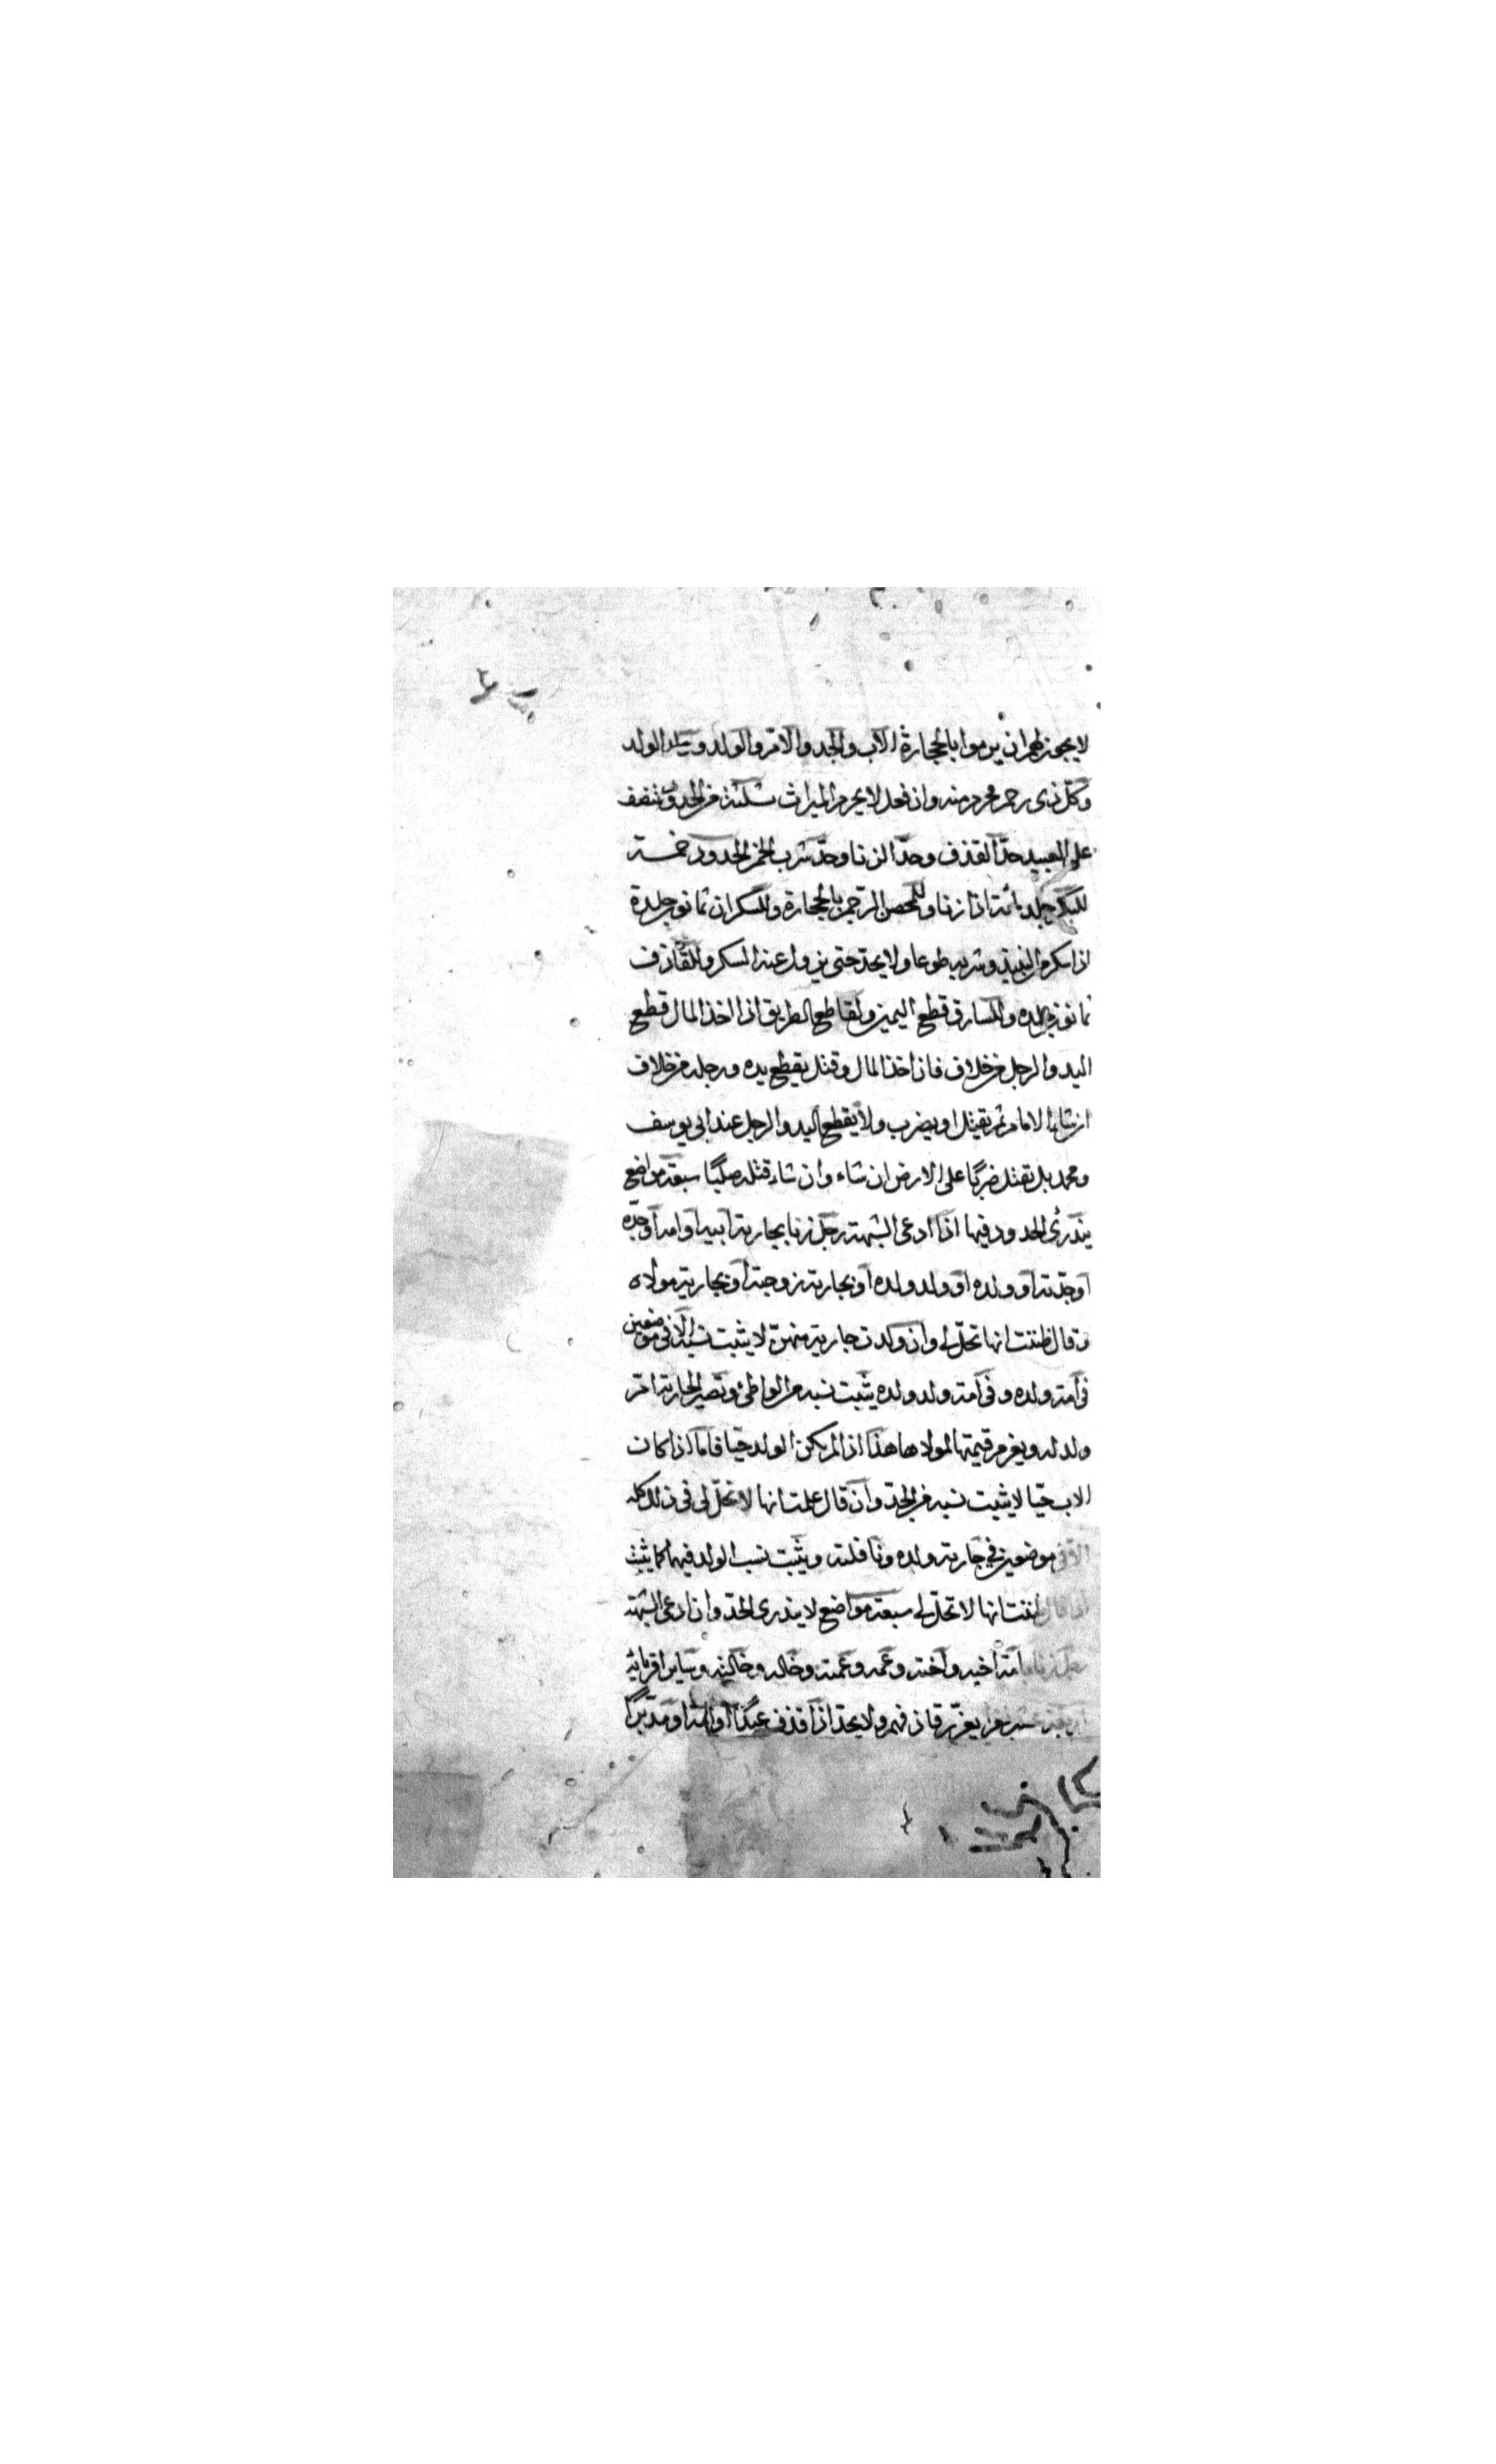 لا يجوز لهم ان يرموا بالحجارة الاب والجد والام والولد وولد الولد
وكل ذى رحم محرم منه وان فعل لا يحرم الميراث ثلثة من الحدود تنصف
على العبيد حد القذف وحد الزنا وحد شرب الخمر الحدود خمسة
للبكر جلد مائة اذا زنا وللمحصن الرجم بالحجارة وللسكران ثمانون جلدة
اذا سكر من النبيذ وشربه طوعا ولا يحد حتى يزول عنه السكر وللقاذف
ثمانون جلده وللسارق قطع اليمين ولقاطع الطريق اذا اخذ المال قطع
اليد والرجل من خلاف فان اخذ المال وقتل يقطع يده ورجله من خلاف
ان شاء الامام ثم يقتل او يضرب ولا يقطع اليد والرجل عند ابى يوسف
ومحمد بل يقتل ضربا على الارض ان شاء وان شاء قتله صلبا سبعة مواضع
يندرئ الحدود فيها اذا ادعى الشبهة رجل زنا بجارية ابيه او امه او جده
او جدته او ولده او ولد ولده او بجارية زوجته او بجارية مولاه
وقال ظننت انها تحل لى وان ولدت جارية منهن لا يثبت نسبه الا فى موضعين
فى امة ولده وفى امة ولد ولده يثبت نسبه من الواطئ وتصير الجارية ام
ولد له ويغرم قيمتها لمولاها هذا اذا لم يكن الولد حيا فاما اذا كان
الاب حيا لا يثبت نسبه من الجد وان قال علمت انها لا تحل لى فى ذلك كله
الا فى موضعين فى جارية ولده ونافلته ويثبت نسب الولد فيهما كما يثبت
اذا قال ظننت انها لا تحل لى سبعة مواضع لا يندرى الحد وان ادعى الشبهة
رجل زنا بامة اخيه واخته وعمه وعمته وخاله وخالته وساير اقربائه
يعزر قاذفهم ولا يحد اذا قذف عبدا او امة او مدبرا